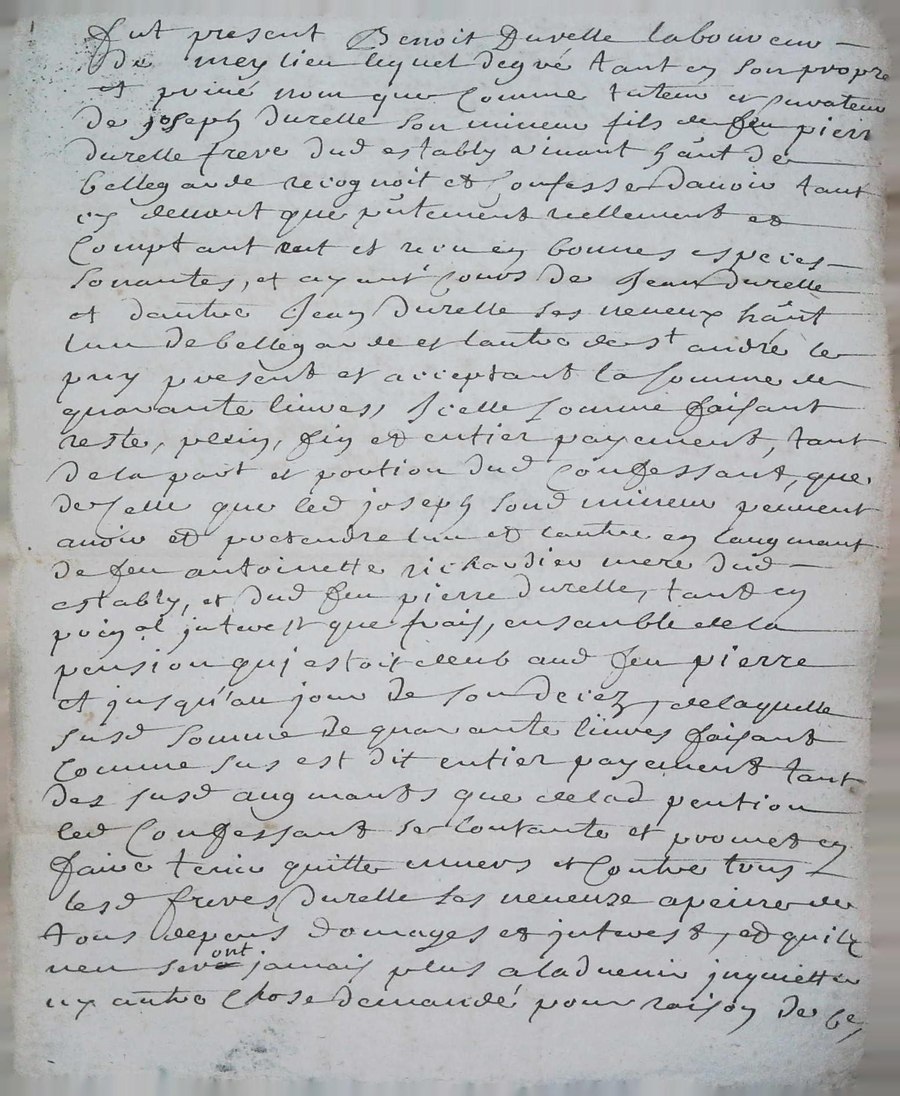 fut present Benoit Durelle laboureur
de meylieu lequel de gré tant en son propre
et privé nom que comme tuteur et curateur
de joseph durelle son mineur fils de feu pierre
durelle frere dud estably vivant hãnt de
bellegarde recognoit et confesse davoir tant
cy devant que pñtement reellement et
comptant eut et receu en bonnes especes
sonantes, et ayant cours de Jean durelle
et dautre Jean durelle ses neveux hãnt
lun de bellegarde et lautre de st andré le
puy present et acceptant la somme de
quarante livres, Icelle somme faisant
reste, plein, fin et entier payement, tant
de la part et portion dud Confessant, que
de Celle que led joseph sond mineur peuvent
avoir et pretendre lun et lautre en laugmant
de feu antoinette richardier mere dud
estably, et dud feu pierre durelle, tant en
prinçal jnterest que frais, ensemble de la
pension quj estoit deub aud feu pierre
et jusqu'au jour de son decez, de laquelle
susd somme de quarante livres faisant
comme sus est dit entier payement tant
des susd augmants que de lad pention
led Confessant se contante et promet en
faire tenir quitte envers et Contre tous
lesd freres durelle ses neveuze a peine de
tous depens domages et jnterest, et quilz
nen seront jamais plus a ladvenir jnquietté
ny autre Chose demandé pour raison de ce,